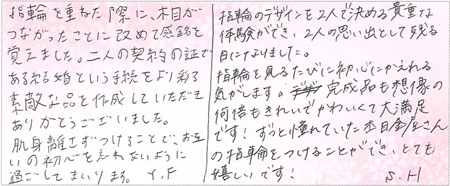 指輪を重ねた際に、木目が
つながったことに改めて感銘を
覚えました。二人の契約の証で
ある結婚という手続をより彩る
素敵な品を作成していただき
ありがとうございました。
肌身離さずつけることで、お互
いの初心を忘れないように
過ごしてまいります。 Y.F
指輪のデザインを2人で決める貴重な
体験ができ、2人の思い出として残る
日になりました。
指輪を見るたびに初心にかえれる
気がします。完成品も想像の
何倍もきれいでかわいくて大満足
です!ずっと憧れていた杢目金屋さん
の指輪をつけることができ、とても
嬉しいです! S.H